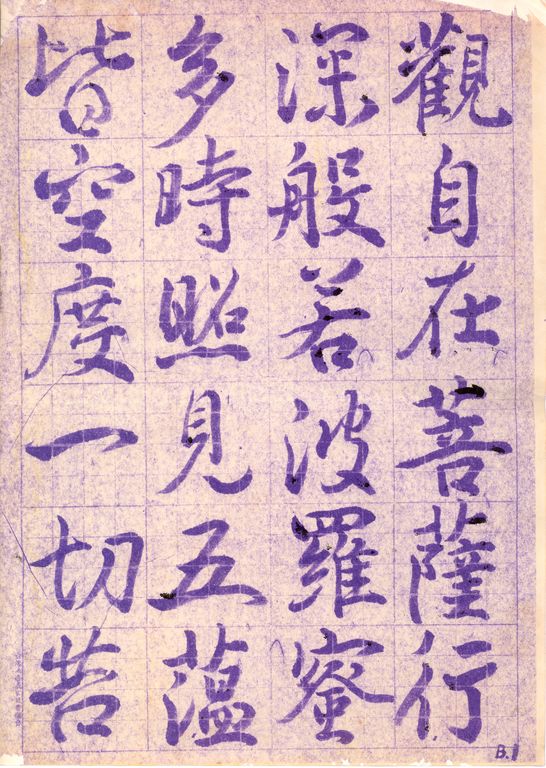 觀自在菩薩行
深般若波羅蜜
多時照見五薀
皆空度一切苦
B.1